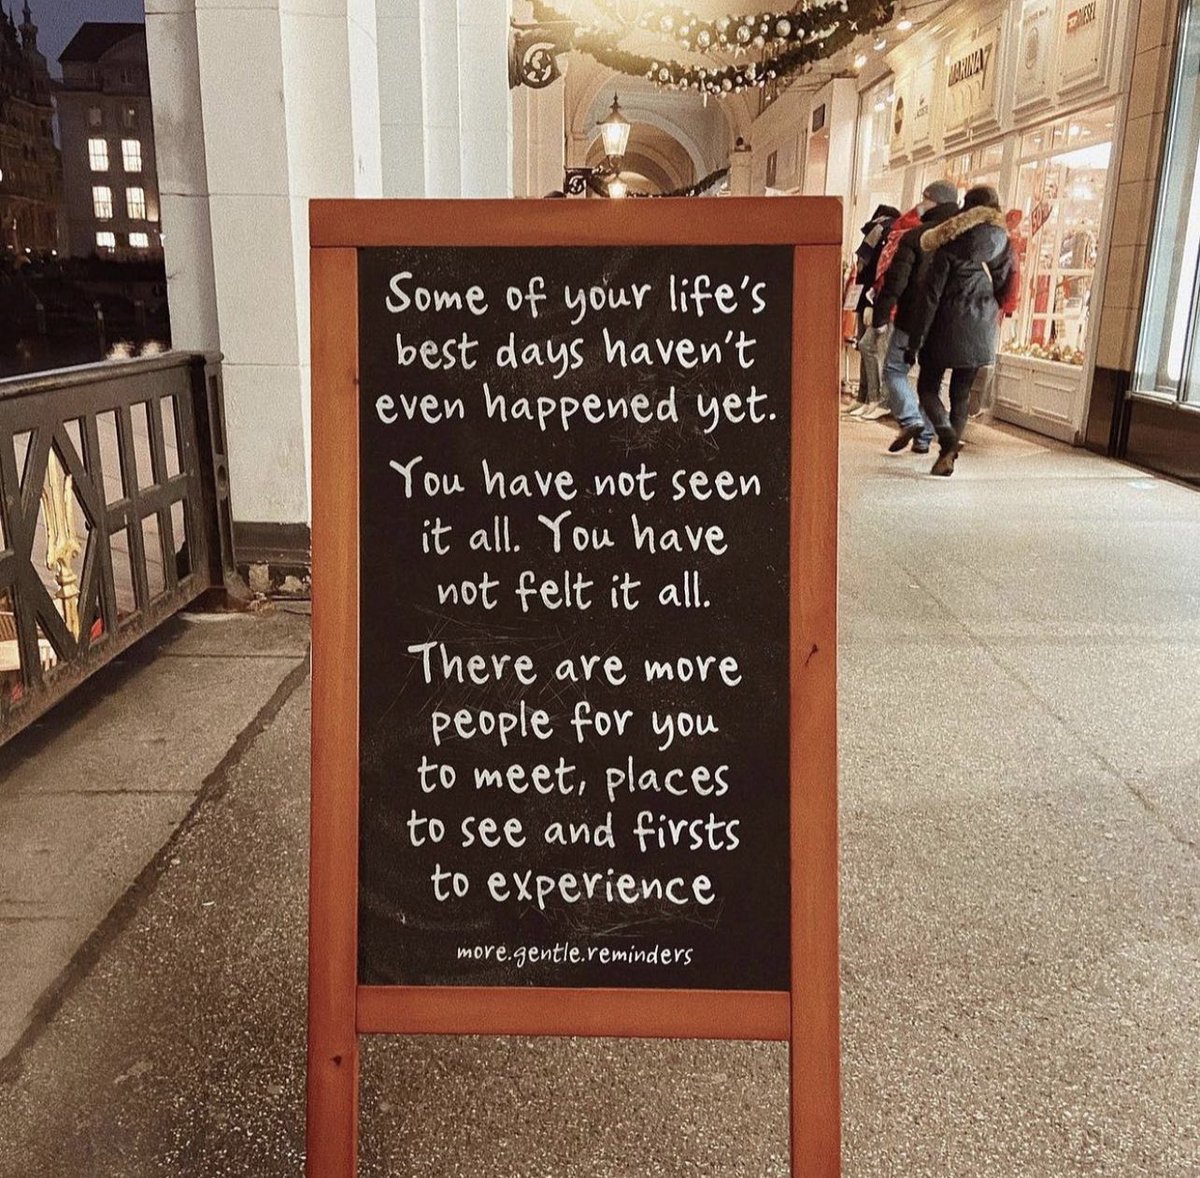 Some of your life's
best days haven't
even happened yet.
You have not seen
it all. You have
not felt it all.
There are more
people for you
to meet, places
to see and firsts
to experience
more.gentle.reminders
MARINA
DIESEL